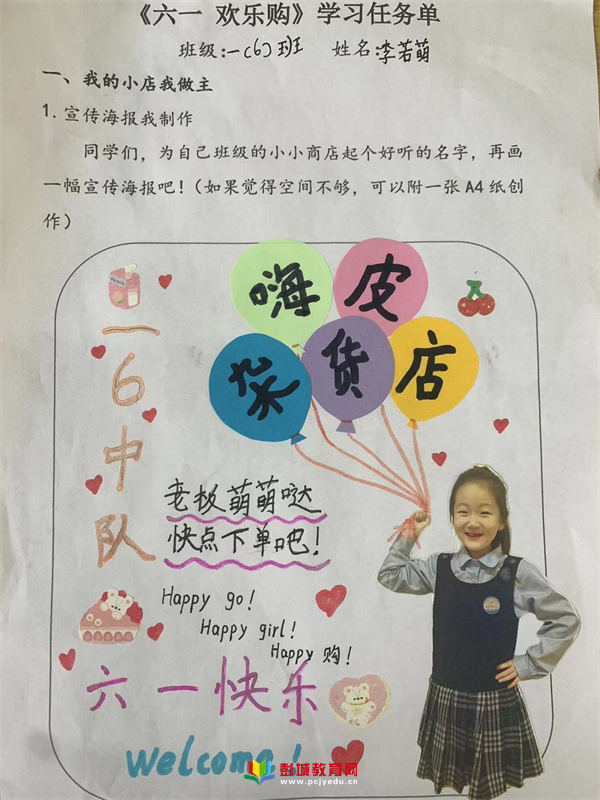 《六一 欢乐购》学习任务单
班级:一(6)班 姓名:李若萌
一、我的小店我做主
1.宣传海报我制作
同学们，为自己班级的小小商店起个好听的名字，再画
一幅宣传海报吧！（如果觉得空间不够，可以附一张 A4 纸创
作）
嗨皮
杂货店
一6中队
老板萌萌哒
快点下单吧！
Happy go!
Happy girl!
Happy 购!
六一快乐
Welcome!
彭城教育网
www.pcjyedu.cn